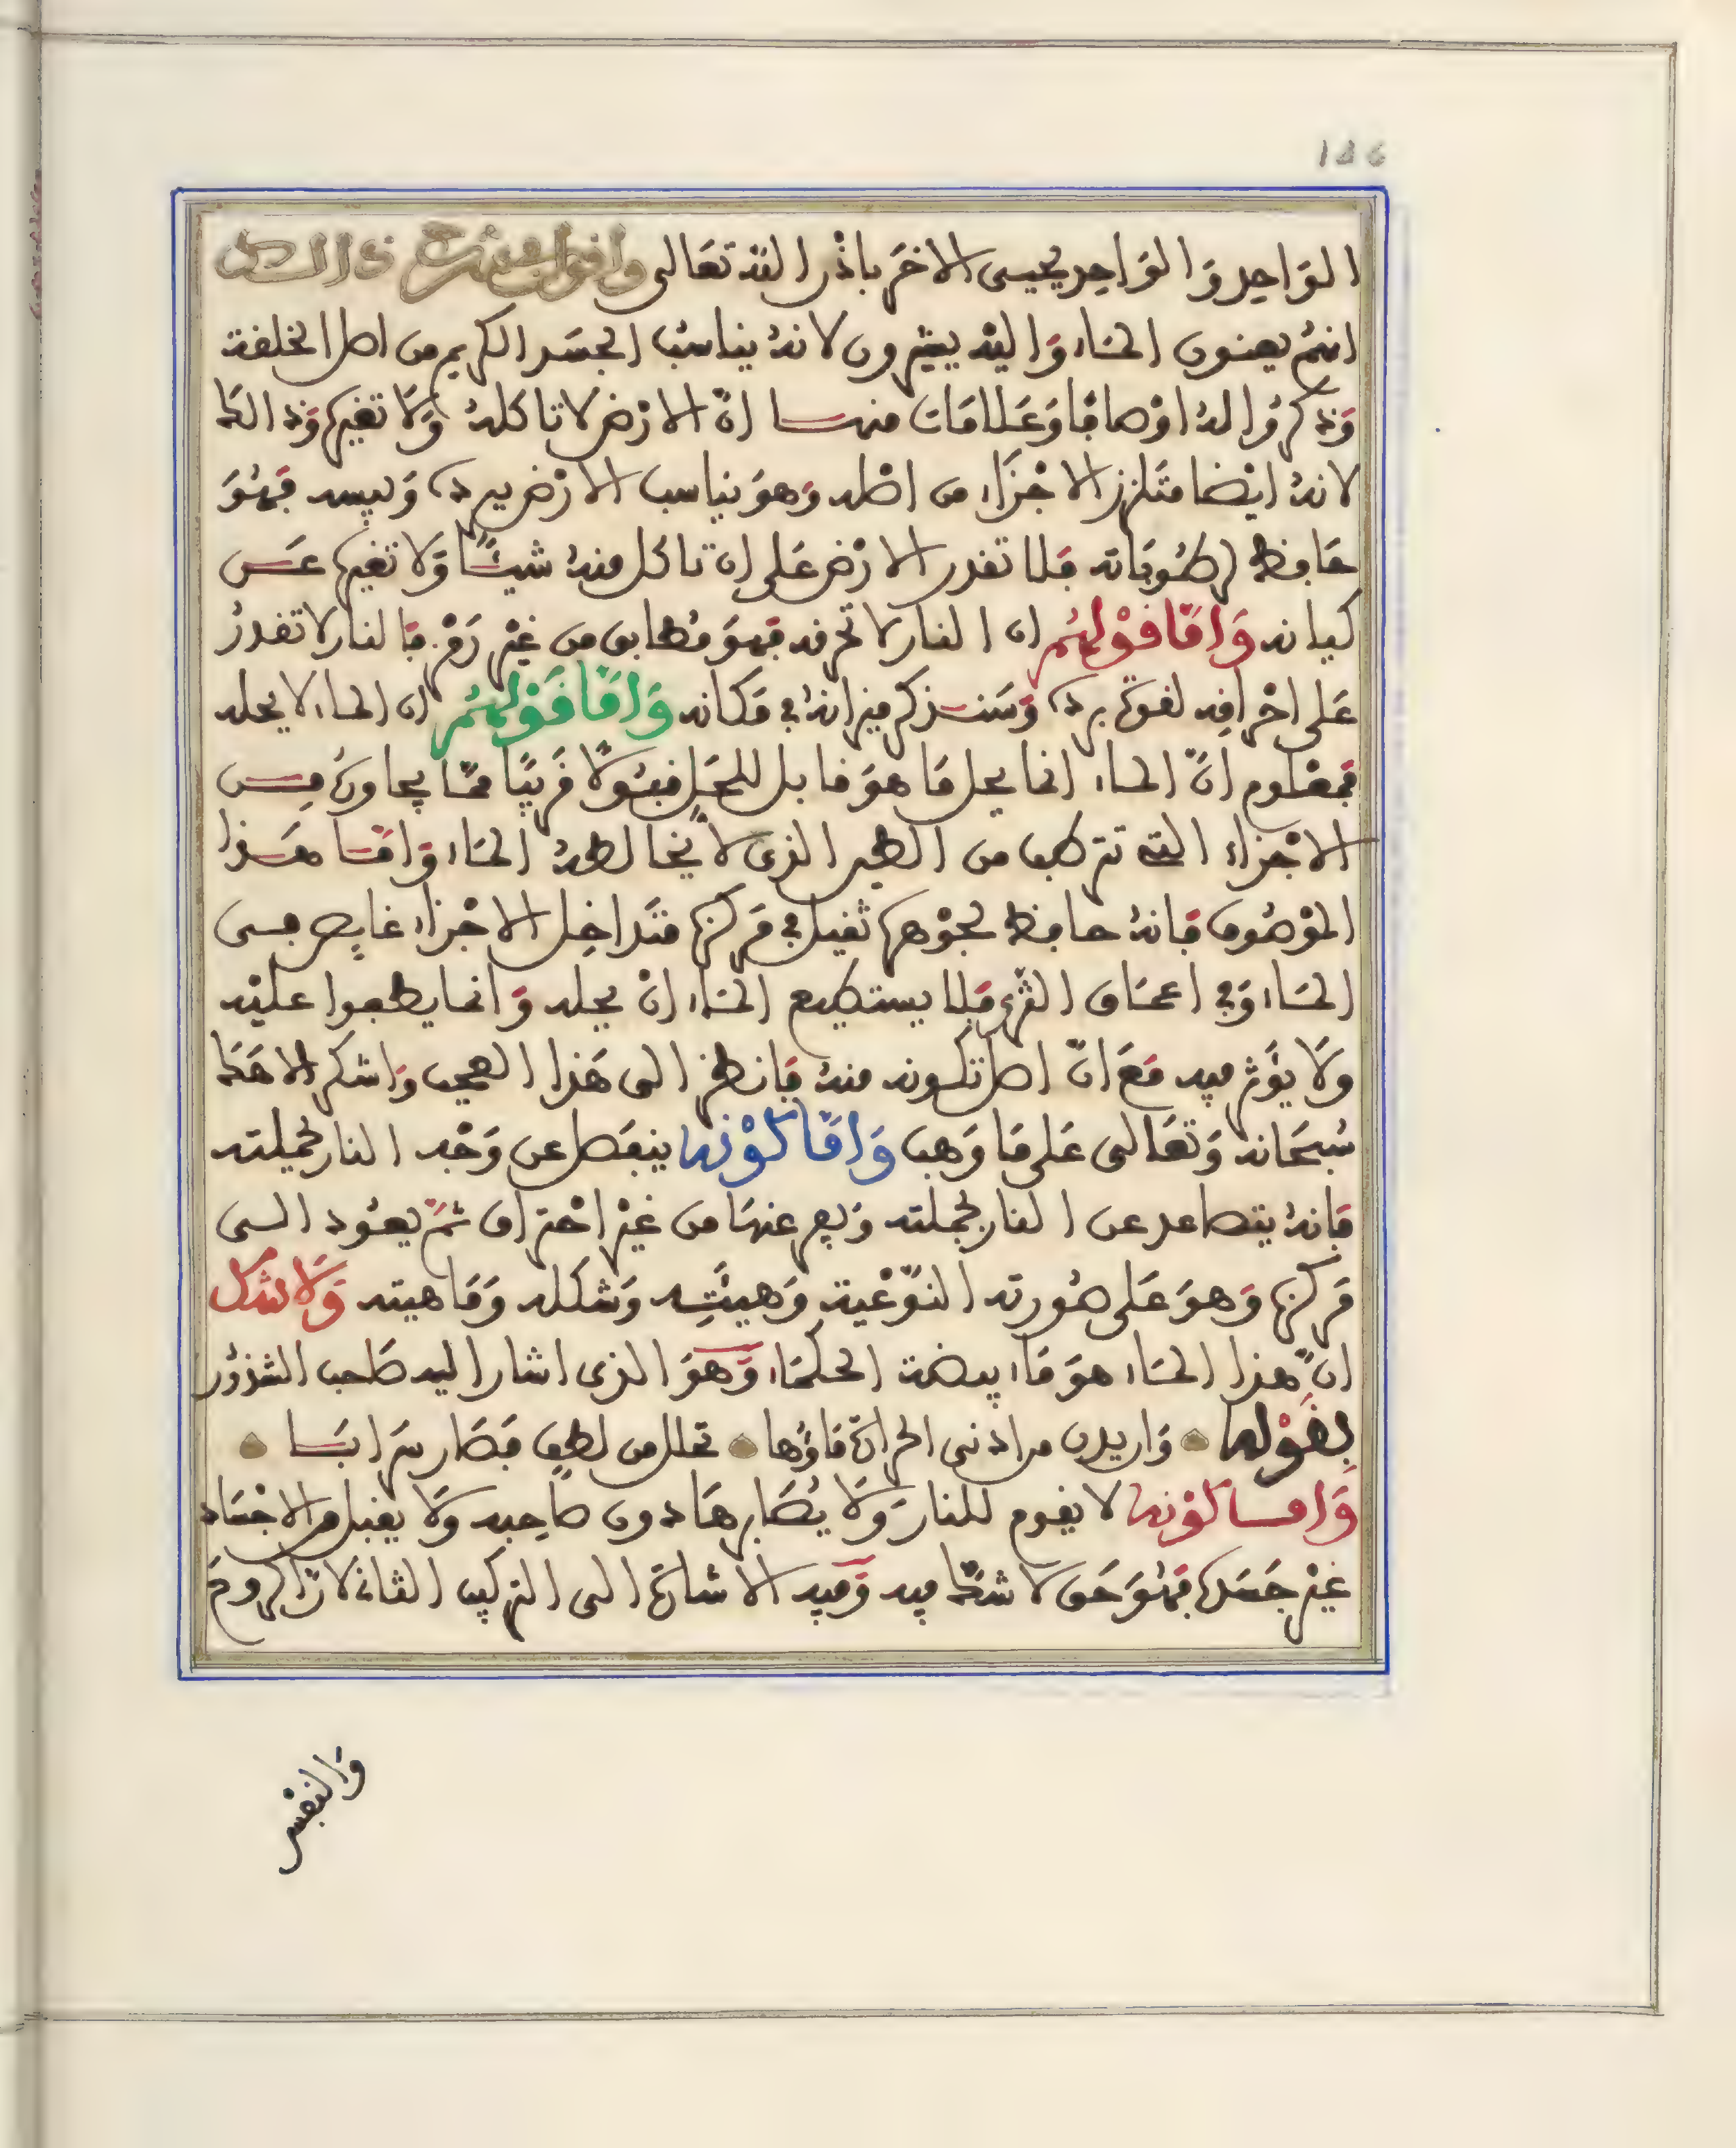 186
الوَاحِد وَالوَاحِد يحيى الاخَر باذْن الله تعَالى وأقول
انهُم يعنون الماء وَاليْه يشيْرون لانهُ يناسبُ الجسَد الكريم من اصل الخلقة
وَذكرُوا لهُ اوْصافا وَعَلامَات منها انّ الارْض لا تاكلهُ وَلا تغيره وَذالك
لانهُ ايْضا متَلزز الاجْزَاء من اصْله وَهوَ يناسب الارْض ببرده وَيبسه فهُوَ
حَافظ لرطُوبَاته فلا تقدر الارْض عَلى ان تاكل منهُ شيئًا وَلا تغيره عَن
كيانه وَامَّا قوْلهُم ان النار لا تحرقه فهوَ مُطابق من غيْر رَمْز فالنار لا تقدرُ
عَلى احْراقه لقوة برده وَسَنذكر ميزانهُ في مَكانه وَامَّا قَوْلهُم ان الماء لا يحله
فمعْلوم انّ الماء انما يحل مَا هوَ قابل للحَل قبُولًا قَريبًا ممّا يجاورهُ من
الاجْزاء التى تتركب من الطين الذى لا يُخالطهُ الماء وَامّا هَذا
الموْصُوف فانهُ حافظ لجوْهره ثقيل في مَركزه متَداخِل الاجْزاء غايص في
الماء وَفي اعماق الثرى فلا يستطيع الماء انْ يحله وَانما يطفوا عليْه
وَلا يؤَثر فيه مَعَ انّ اصل تكونه منهُ فانظر الى هَذا العجب وَاشكر الاهَك
سُبحَانهُ وَتعَالى عَلى مَا وَهب وَامَّا كوْنه ينفصل عن وَجْه النار بجملته
فانهُ يتصاعد عن النار بجملته وَيفر عنهَا من غيْر احْتراق ثمّ يعُود الى
مَركزه وَهوَ عَلى صُورته النوّعْية وَهيئَتِه وَشكله وَمَاهيته وَلا شك
انّ هذا الماء هوَ مَاء بيضة الحكمَاء وَهوَ الذى اشار اليه صَاحب الشذوُر
بقَوْله وَاريدن من ادنى الحرارة مَاؤُها تحلل من لطفٍ فصَار سَرابَا
وَاما كوْنه لا يقوم للنار وَلا يُصَابرهَا دون صَاحِبه وَلا يقبل من الاجْسَاد
غيْر جَسَده فهُوَ حَق لا شكّ فيه وَفيه الاشارة الى التركيب الثانى لان الروح
وَالنفْس